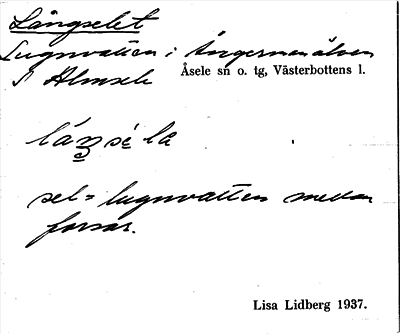 Långselet
Lugnvatten i Ångermanälven
Åsele sn o. tg, Västerbottens l.
sel = lugnvatten mellan
forsar.
Lisa Lidberg 1937.